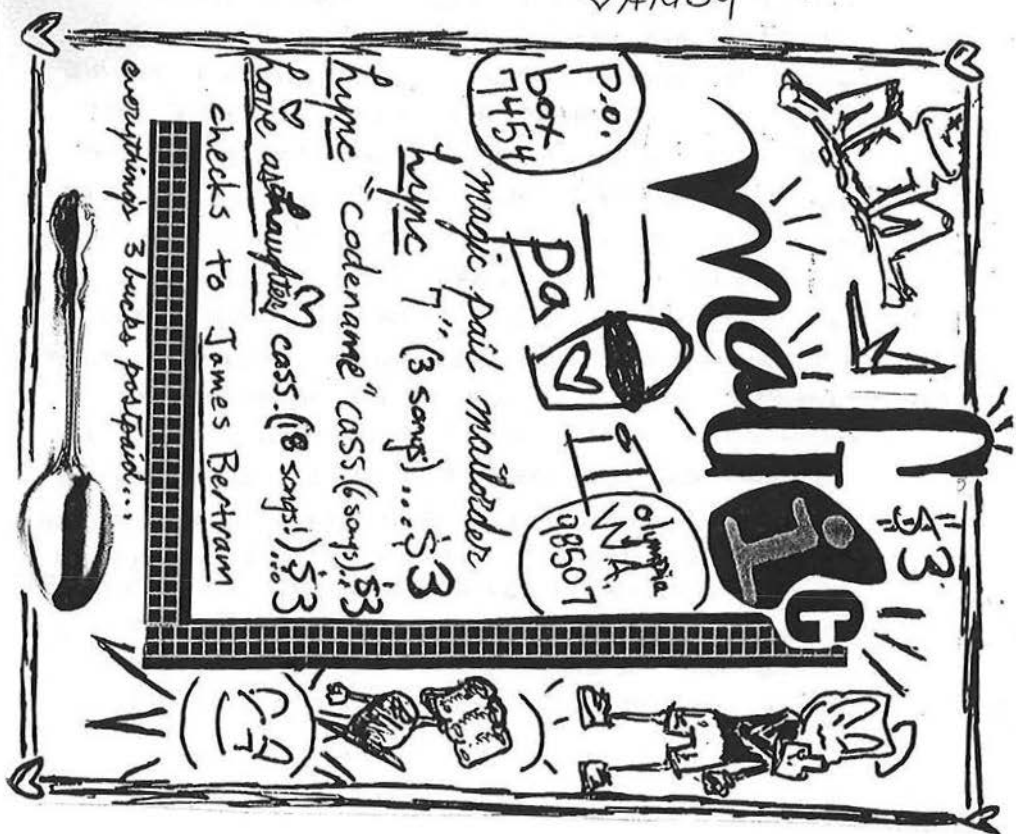 magic
$3.
P.O.
box
7454
Pa il
olympia
WA
98507
magic pail mailorder
lync 7" (3 songs)....$3
lync "codename" cass.(6 songs)..$3
love as laughter cass.(18 songs!)...$3
checks to James Bertram
everything's 3 bucks postpaid...